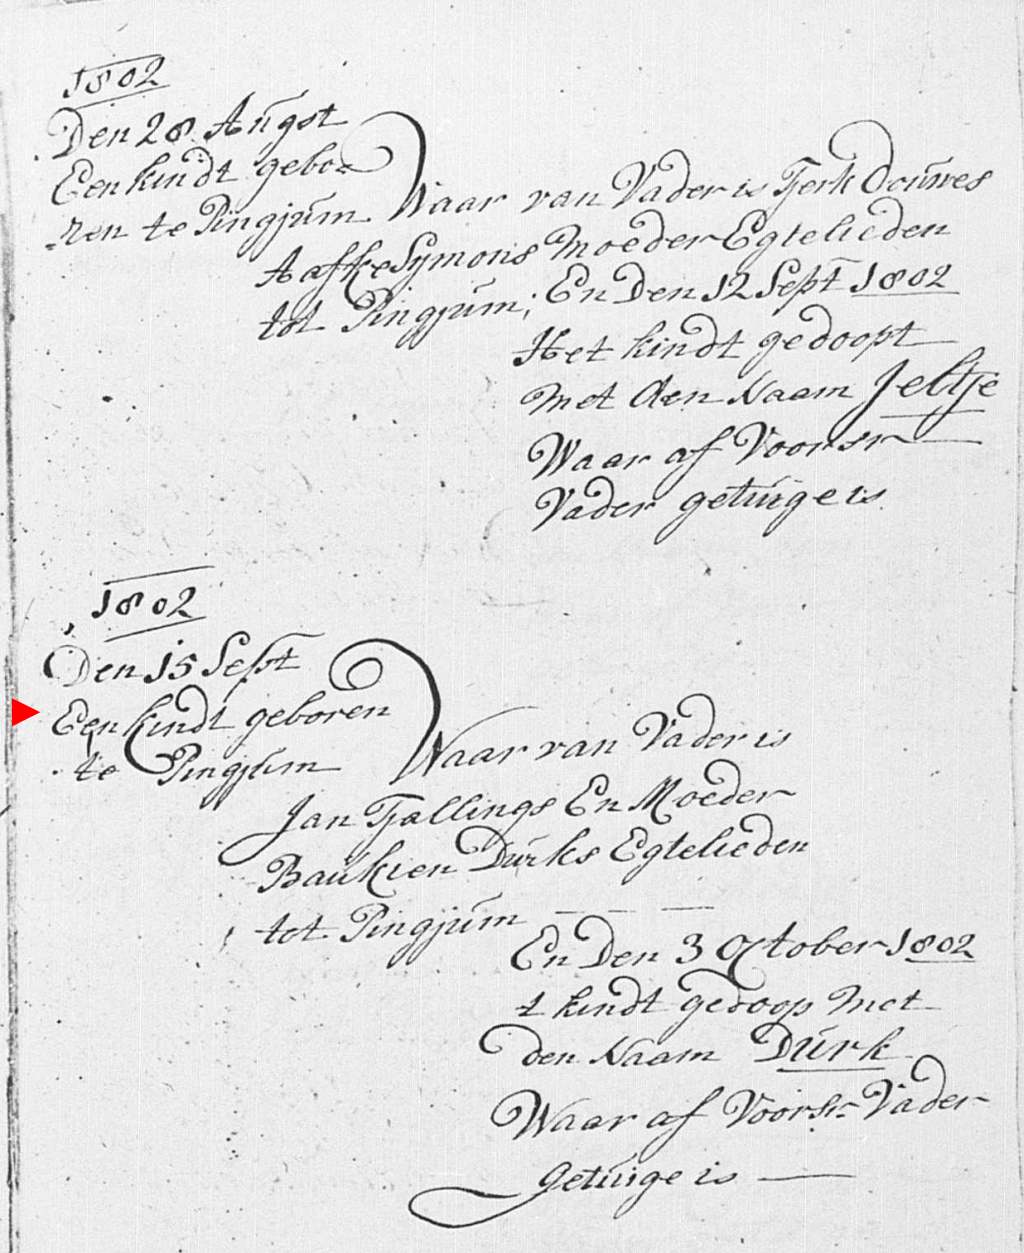 1802
Den 28 Augst
Een kindt gebo=
ren te Pingjum Waar van Vader is Tjerk Douwes
Aafke Symons Moeder Egtelieden
tot Pingjum; En Den 12 Sept 1802
Het kindt gedoopt
met den Naam Jeltje
Waar af Voorsr
Vader getuige is
1802
Den 15 Sept
Een kindt geboren
te Pingjum Waar van Vader is
Jan Tjallings En Moeder
Baukien Durks Egtelieden
tot Pingjum
En Den 3 October 1802
t kindt gedoop met
den Naam Durk
Waar af Voorsr Vader
getuige is